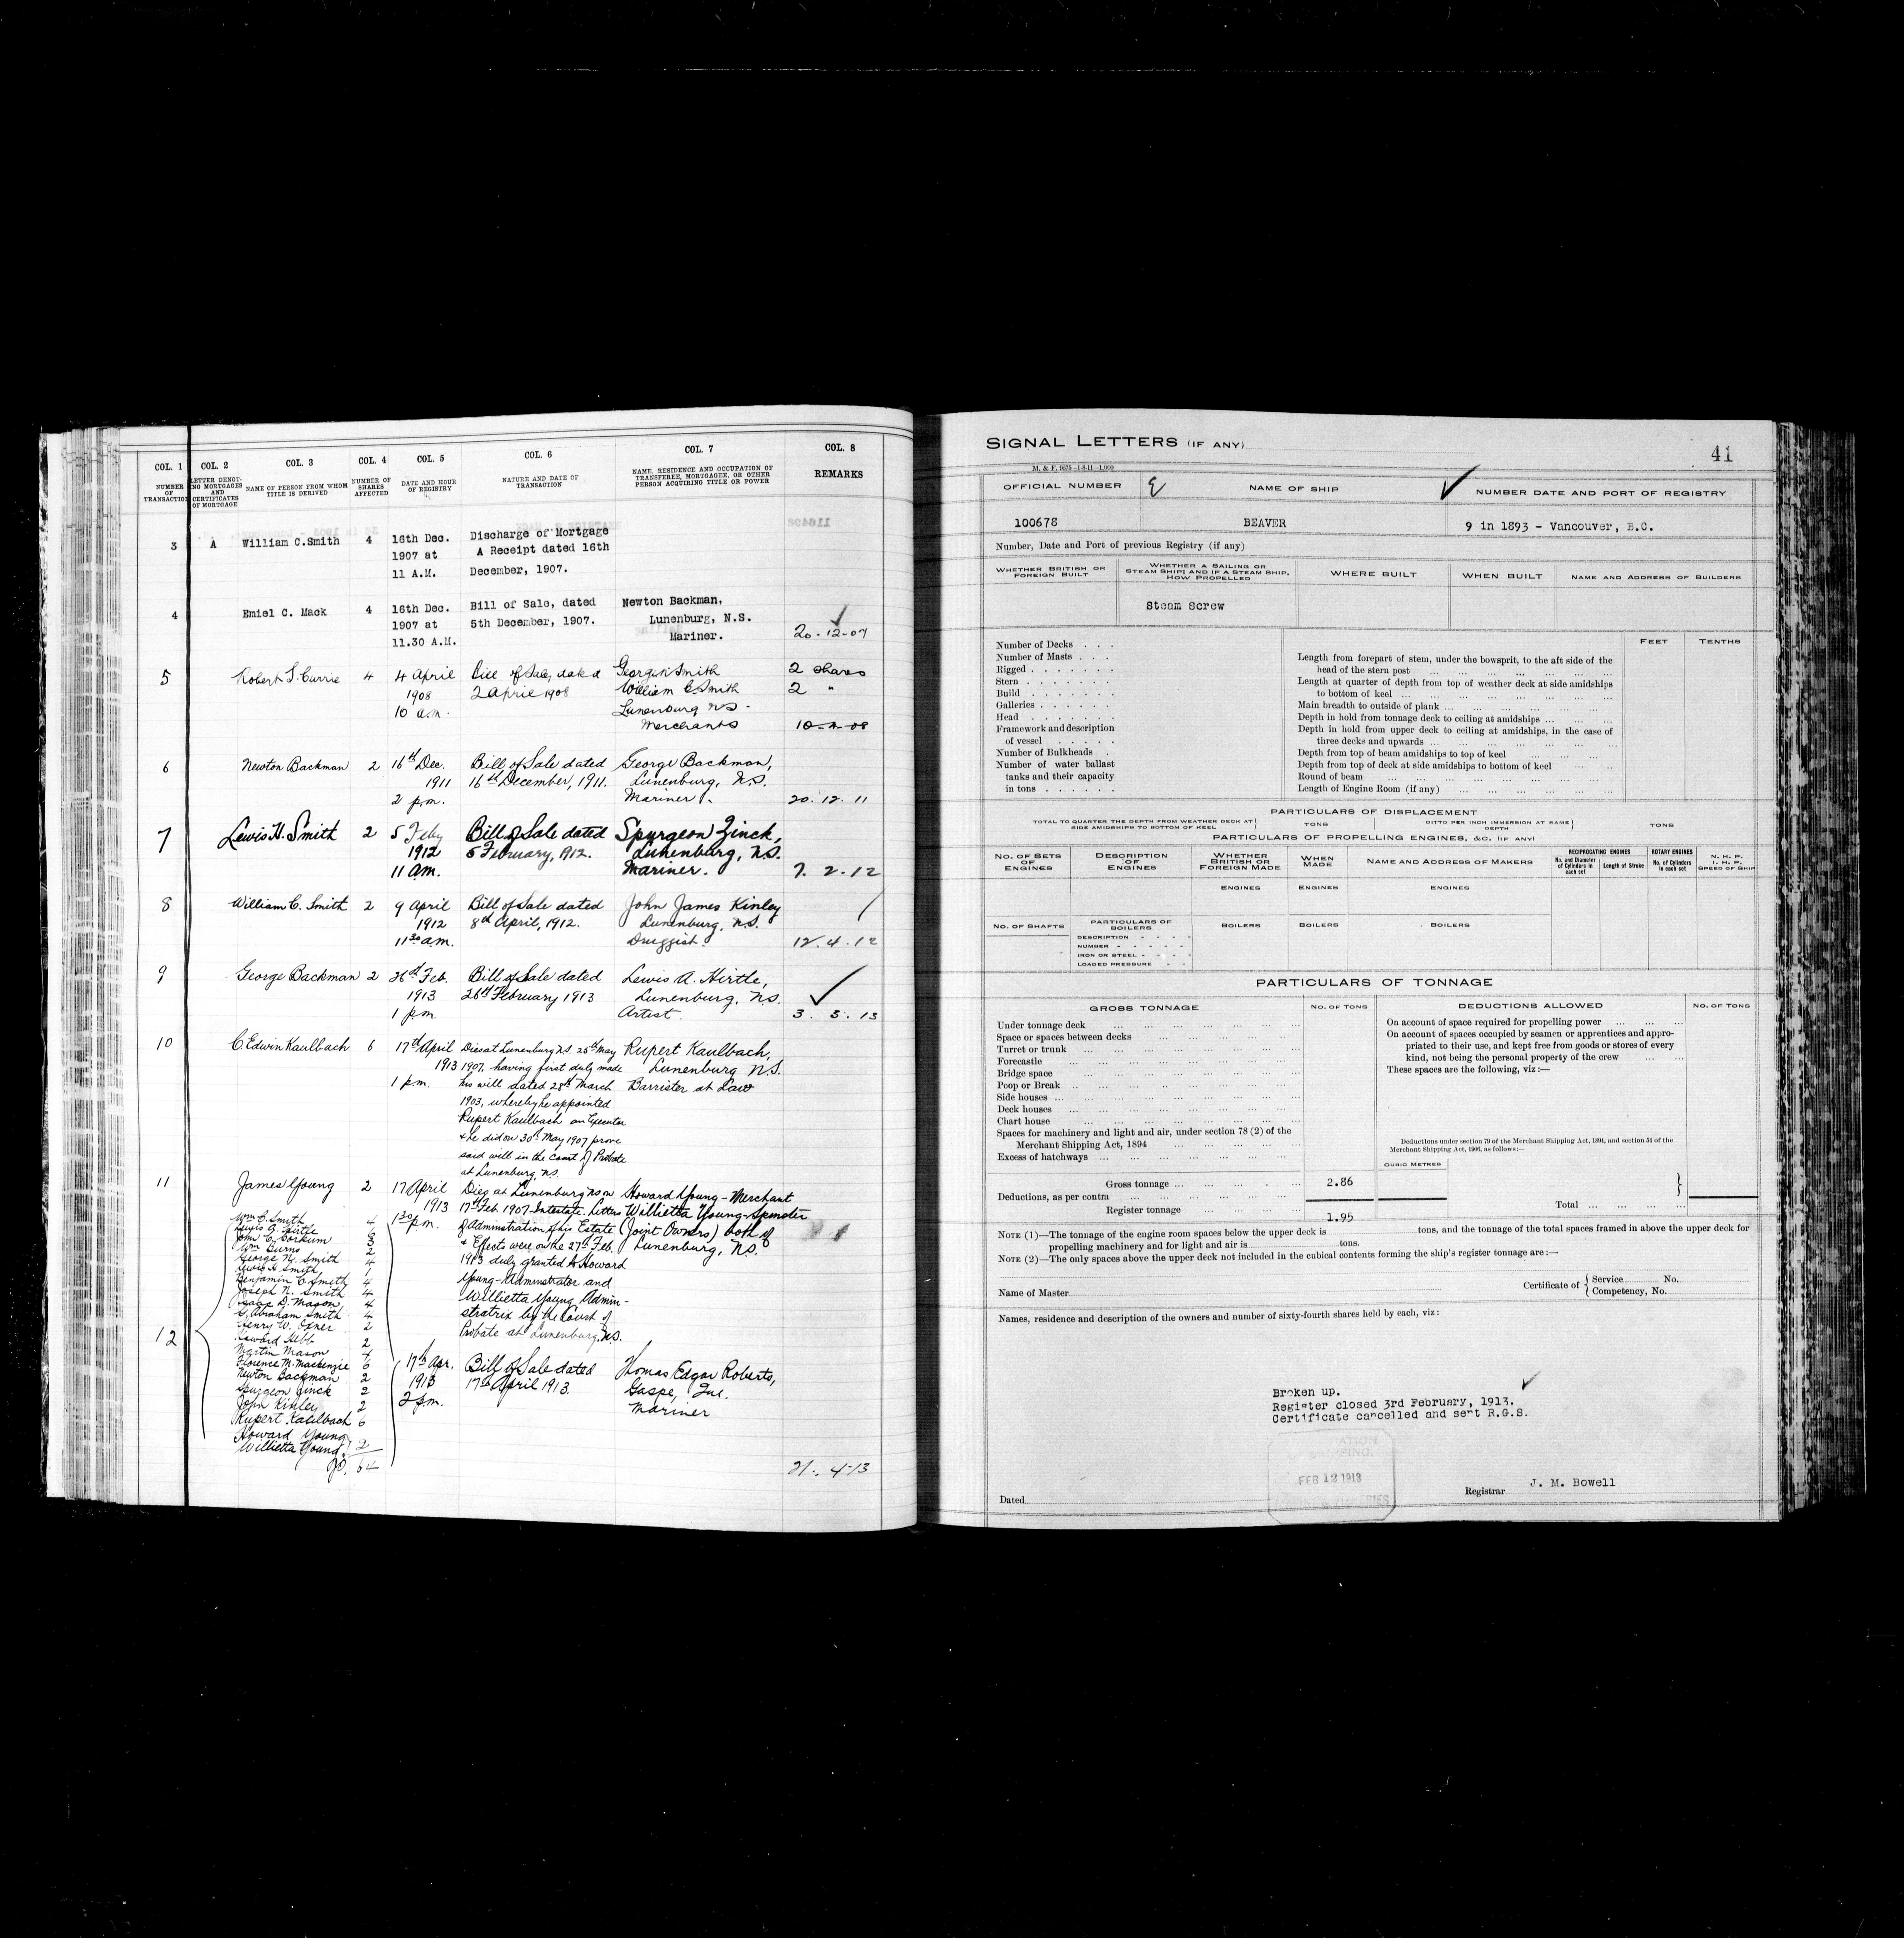 COL. 1 COL. 2 COL. 3 COL. 4 COL. 5 COL. 6 COL. 7 COL. 8
NUMBER OF TRANSACTION
LETTER DENOTING MORTGAGES AND CERTIFICATES OF MORTGAGE
NAME OF PERSON FROM WHOM TITLE IS DERIVED
NUMBER OF SHARES AFFECTED
DATE AND HOUR OF REGISTRY
NATURE AND DATE OF TRANSACTION
NAME, RESIDENCE AND OCCUPATION OF TRANSFEREE, MORTGAGEE, OR OTHER PERSON ACQUIRING TITLE OR POWER
REMARKS
3 A William C.Smith 4 16th Dec. Discharge of Mortgage
1907 at A Receipt dated 16th
11 A.M. December, 1907.
4 Emiel C. Mack 4 16th Dec. Bill of Sale, dated Newton Backman,
1907 at 5th December, 1907. Lunenburg, N.S.
11.30 A.M. Mariner. 20-12-07
5 Robert S. Currie 4 4 April Bill of Sale, dated George N Smith 2 shares
1908 2 April 1908 William C. Smith 2 "
10 a.m. Lunenburg NS.
Merchants
6 Newton Backman 2 16th Dec. Bill of Sale dated George Backman,
1911 16th December, 1911. Lunenburg, N.S.
2 p.m. Mariner. 20. 12. 11
7 Lewis H. Smith 2 5 Feby Bill of Sale dated Spurgeon Zinck,
1912 5 February, 1912. Lunenburg, N.S.
11 am. Mariner. 7. 2. 12
8 William C. Smith 2 9 April Bill of Sale dated John James Kinley
1912 8th April, 1912. Lunenburg, N.S.
11 30 am. Druggist. 12. 4. 12
9 George Backman 2 26th Feb. Bill of Sale dated Lewis A. Hirtle,
1913 26th February 1913 Lunenburg, N.S.
1 p.m. Artist. 3. 3. 13
10 C. Edwin Kaulbach 6 17th April Died at Lunenburg N.S. 25th May Rupert Kaulbach,
1913 1907, having first duly made Lunenburg N.S.
1 p.m. his will dated 28th March Barrister at Law
1903, whereby he appointed
Rupert Kaulbach an Executor
& he did on 30th May 1907 prove
said will in the Court of Probate
at Lunenburg, N.S.
11 James Young 2 17 April Died at Lunenburg NS on Howard Young - Merchant
1913 17th Feb. 1907 Intestate. Letters Willietta Young - Spinster
1 30 p.m. of Administration of his Estate (Joint Owners) both of
& Effects were on the 27th Feb. Lunenburg, N.S.
1913 duly granted to Howard
Young - Administrator and
Willietta Young Admin-
stratrix by the Court of
Probate at Lunenburg, N.S.
12
Wm C. Smith 4
Lewis A. Hirtle
John C. Corkum
Wm Burns 2
George N. Smith 4
Lewis H. Smith 1
Benjamin C. Smith 4
Joseph N. Smith 4
Isaac D. Mason 4
S. Abraham Smith 4
Henry W. Oxner 2
Howard Hebb 2
Martin Mason 4
Florence M. Mackenzie 6
Newton Backman 2
Spurgeon Zinck 2
John Kinley 2
Rupert Kaulbach 6
Howard Young
Willietta Young. Jo. 2
64
17th Apr. Bill of Sale dated Thomas Edgar Roberts,
1913 17th April 1913. Gaspe, Que.
2 p.m. Mariner
21. 4-13
SIGNAL LETTERS (IF ANY)
41
M. & F. 1675-1-8-11-1,000
OFFICIAL NUMBER NAME OF SHIP NUMBER DATE AND PORT OF REGISTRY
100678 BEAVER 9 in 1893 - Vancouver, B.C.
Number, Date and Port of previous Registry (if any)
WHETHER BRITISH OR FOREIGN BUILT
WHETHER A SAILING OR STEAM SHIP; AND IF A STEAM SHIP, HOW PROPELLED
WHERE BUILT
WHEN BUILT
NAME AND ADDRESS OF BUILDERS
Steam Screw
FEET TENTHS
Number of Decks . . .
Number of Masts . . .
Rigged
Stern
Build
Galleries
Head
Framework and description
of vessel
Number of Bulkheads
Number of water ballast
tanks and their capacity
in tons
Length from forepart of stem, under the bowsprit, to the aft side of the
head of the stern post
Length at quarter of depth from top of weather deck at side amidships
to bottom of keel
Main breadth to outside of plank
Depth in hold from tonnage deck to ceiling at amidships
Depth in hold from upper deck to ceiling at amidships, in the case of
three decks and upwards
Depth from top of beam amidships to top of keel
Depth from top of deck at side amidships to bottom of keel
Round of beam
Length of Engine Room (if any)
PARTICULARS OF DISPLACEMENT
TOTAL TO QUARTER THE DEPTH FROM WEATHER DECK AT SIDE AMIDSHIPS TO BOTTOM OF KEEL TONS DITTO PER INCH IMMERSION AT SAME DEPTH TONS
PARTICULARS OF PROPELLING ENGINES, &C. (IF ANY)
NO. OF SETS OF ENGINES
DESCRIPTION OF ENGINES
WHETHER BRITISH OR FOREIGN MADE
WHEN MADE
NAME AND ADDRESS OF MAKERS
RECIPROCATING ENGINES
No. and Diameter of Cylinders in each set
Length of Stroke
ROTARY ENGINES
No. of Cylinders in each set
N. H. P.
I. H. P.
SPEED OF SHIP
ENGINES ENGINES ENGINES
NO. OF SHAFTS
PARTICULARS OF BOILERS
BOILERS BOILERS BOILERS
DESCRIPTION
NUMBER
IRON OR STEEL
LOADED PRESSURE
PARTICULARS OF TONNAGE
GROSS TONNAGE NO. OF TONS DEDUCTIONS ALLOWED NO. OF TONS
Under tonnage deck
Space or spaces between decks
Turret or trunk
Forecastle
Bridge space
Poop or Break
Side houses
Deck houses
Chart house
Spaces for machinery and light and air, under section 78 (2) of the
Merchant Shipping Act, 1894
Excess of hatchways
On account of space required for propelling power
On account of spaces occupied by seamen or apprentices and appro-
priated to their use, and kept free from goods or stores of every
kind, not being the personal property of the crew
These spaces are the following, viz :—
Deductions under section 79 of the Merchant Shipping Act, 1894, and section 54 of the
Merchant Shipping Act, 1906, as follows:—
CUBIC METRES
Gross tonnage 2.86
Deductions, as per contra
Total
Register tonnage 1.95
NOTE (1)—The tonnage of the engine room spaces below the upper deck is tons, and the tonnage of the total spaces framed in above the upper deck for
propelling machinery and for light and air is tons.
NOTE (2)—The only spaces above the upper deck not included in the cubical contents forming the ship's register tonnage are :—
Name of Master
Certificate of { Service No.
Competency, No.
Names, residence and description of the owners and number of sixty-fourth shares held by each, viz :
Broken up.
Register closed 3rd February, 1913.
Certificate cancelled and sent R.G.S.
FEB 12 1913
Dated
Registrar J. M. Bowell